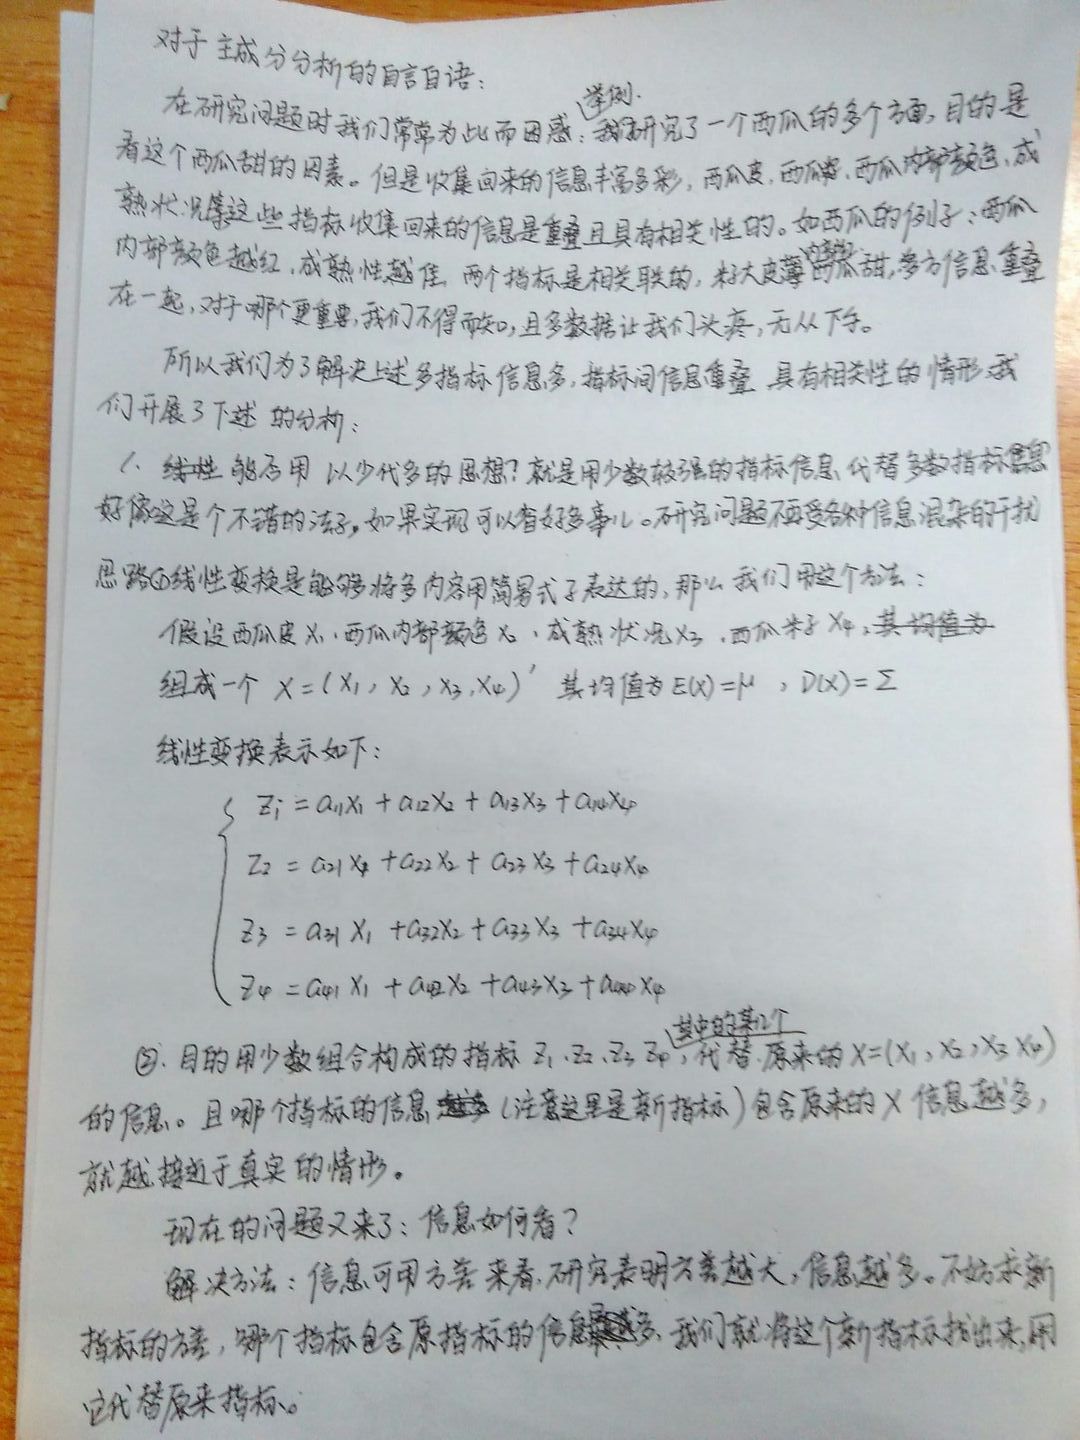 对于主成分分析的自言自语：
举例.
在研究问题时我们常常为此而困惑：我研究了一个西瓜的多个方面，目的是
看这个西瓜甜的因素。但是收集回来的信息丰富多彩，西瓜皮、西瓜、西瓜内部颜色、成
熟状况等这些指标收集回来的信息是重叠且具有相关性的。如西瓜的例子：西瓜
内部颜色越红，成熟性越佳，两个指标是相关联的，籽大皮薄西瓜甜，多方信息重叠
在一起，对于哪个更重要，我们不得而知，且多数据让我们头疼，无从下手。
所以我们为了解决上述多指标信息多，指标间信息重叠 具有相关性的情形，我
们开展了下述的分析：
1. 线性 能否用 以少代多的思想？就是用少数较强的指标信息代替多数指标信息
好像这是个不错的法子，如果实现可以省好多事儿。研究问题不再受各种信息混杂的干扰
思路①线性变换是能够将多内容用简易式子表达的，那么我们用这个方法：
假设西瓜皮X₁、西瓜内部颜色X₂、成熟状况X₃、西瓜籽子X₄，其均值为
组成一个 X=(X₁, X₂, X₃, X₄)′ 其均值为E(X)=μ，D(X)=Σ
线性变换表示如下：
Z₁ = a₁₁X₁ + a₁₂X₂ + a₁₃X₃ + a₁₄X₄
Z₂ = a₂₁X₁ + a₂₂X₂ + a₂₃X₃ + a₂₄X₄
Z₃ = a₃₁X₁ + a₃₂X₂ + a₃₃X₃ + a₃₄X₄
Z₄ = a₄₁X₁ + a₄₂X₂ + a₄₃X₃ + a₄₄X₄
其中的某几个
②. 目的用少数组合构成的指标 Z₁、Z₂、Z₃ Z₄，代替原来的X=(X₁, X₂, X₃ X₄)
的信息。且哪个指标的信息（注意这里是新指标）包含原来的X信息越多，
就越接近于真实的情形。
现在的问题又来了：信息如何看？
解决方法：信息可用方差来看，研究表明方差越大，信息越多。不妨求新
指标的方差，哪个指标包含原指标的信息多，我们就将这个新指标找出来，用
它代替原来指标。